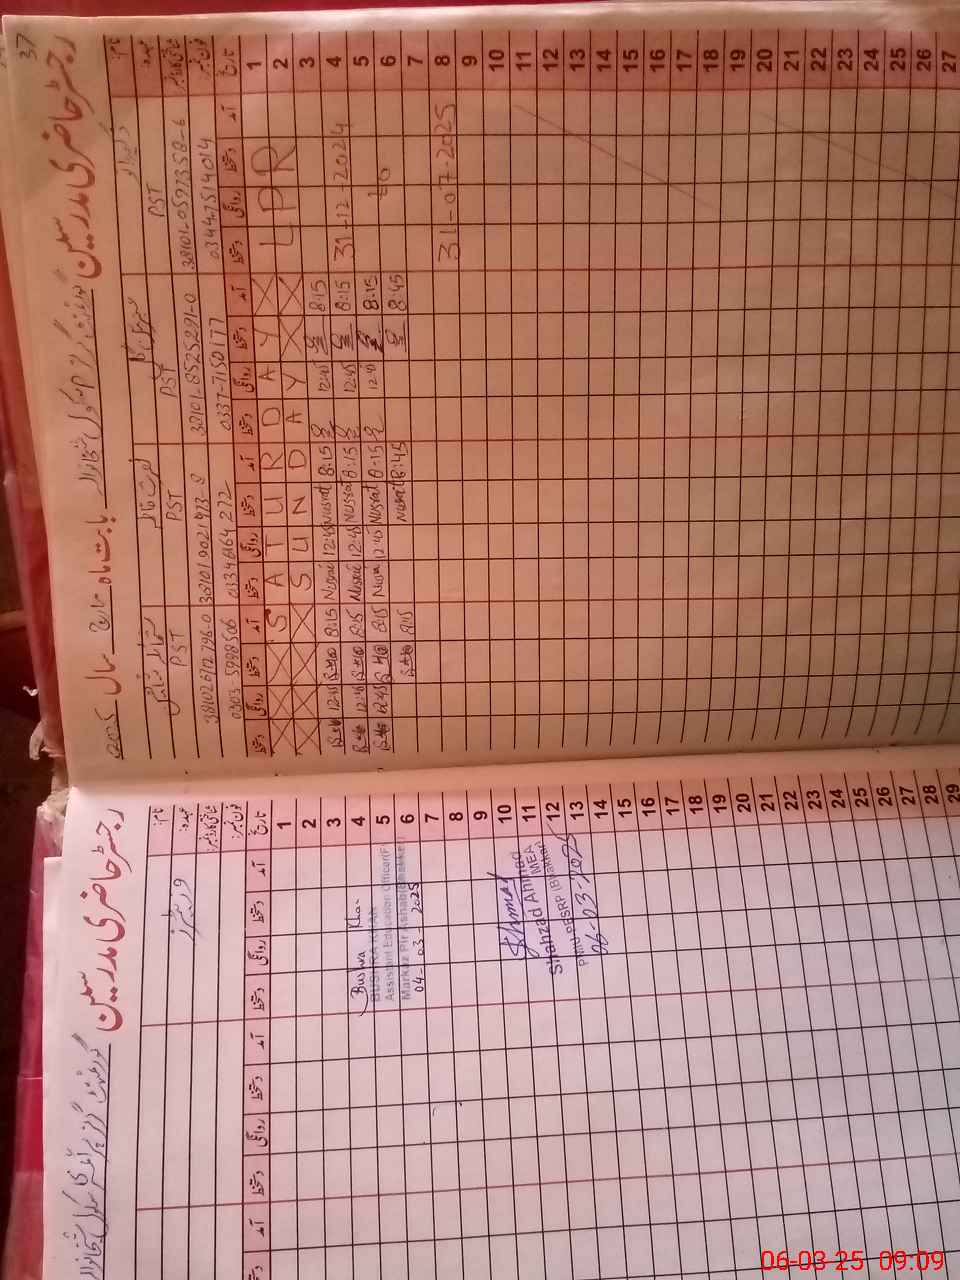 37
رجسٹر حاضری مدرسین
گورنمنٹ گرلز
بابت ماہ مارچ سال 2025
نام
عہدہ
شناختی کارڈ نمبر
فون نمبر
PST PST PST PST
38101-0597358-6
38101-8525291-0
381019021973-8
381026112796-0
0344-7514014
0337-7150177
03346164272
0303-5998506
تاریخ آمد دستخط روانگی دستخط آمد دستخط روانگی دستخط آمد دستخط روانگی دستخط آمد دستخط روانگی دستخط
1 S A T U R D A Y
2 S U N D A Y
LPR
3 8:15 12:45 8:15 Nusrat 12:45 Nusrat 8:15 12:45
4 31-12-2024 8:15 12:45 8:15 Nusrat 12:45 Nusrat 8:15 12:45
5 8:15 12:45 8:15 Nusrat 12:45 8:15 12:45
6 to 8:45 8:45 Nusrat 8:15
7
8 31-07-2025
9
10
11
12
13
14
15
16
17
18
19
20
21
22
23
24
25
26
27
رجسٹر حاضری مدرسین
گورنمنٹ گرلز پرائمری سکول
نام
عہدہ
وزیٹرز
شناختی کارڈ نمبر
فون نمبر
تاریخ آمد دستخط روانگی دستخط آمد دستخط روانگی دستخط آمد دستخط
1
2
3
4 Bushra Khan
BUSHRA KHAN
5 Assistant Education Officer(F)
6 Markaz Pir Ashab(Bhakkar)
04-03-2025
7
8
9
10
11 Shahzad Ahmad
12 MEA
13 PMIU-PESRP (Bhakkar)
14 06-03-2025
15
16
17
18
19
20
21
22
23
24
25
26
27
28
29
06-03-25 09:09